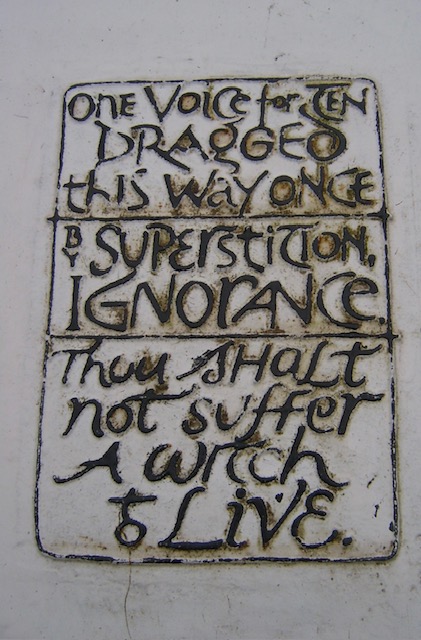 One Voice for TEN
DRAGGED
this Way ONCE
BY SUPERSTITION,
IGNORANCE.
Thou SHALT
not suffer
A witch
to LIVE.